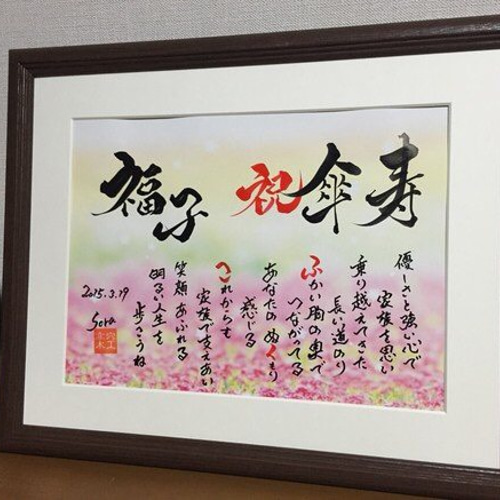 福子 祝傘寿
優しさと強い心で
家族を思い
乗り越えてきた
長い道のり
ふかい胸の奥で
つながってる
あなたのぬくもり
感じる
これからも
家族で支えあい
笑顔あふれる
明るい人生を
歩こうね
2015.3.19
Sora